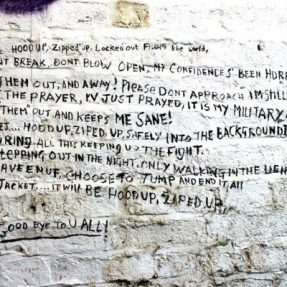 HOOD UP, Zipped up, Locked out From the world,
NT BREAK, DONT BLOW OPEN, MY CONFIDENCES' BEEN HURE
THEM OUT, AND AWAY! PLEASE DONT APPROACH I'M STILL
THE PRAYER, IV JUST PRAYED, IT IS MY MILITARY
THEM OUT AND KEEPS ME SANE!
ET... HOOD UP, ZIPED UP, SAFELY INTO THE BACKGROUND
RING ALL THIS KEEPING US THE FIGHT.
TEPPING OUT IN THE NIGHT. ONLY WALKING IN THE
AVE ENUF, CHOOSE TO JUMP AND END IT ALL
JACKET.... IT WILL BE HOOD UP, ZIPED UP,
OOD BYE TO U ALL!